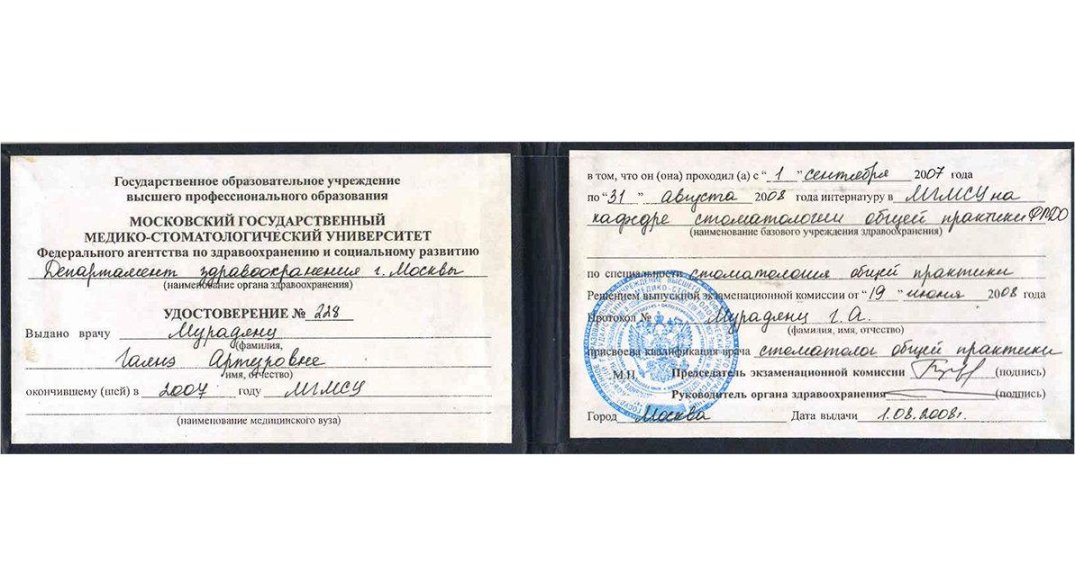 Государственное образовательное учреждение
высшего профессионального образования
МОСКОВСКИЙ ГОСУДАРСТВЕННЫЙ
МЕДИКО-СТОМАТОЛОГИЧЕСКИЙ УНИВЕРСИТЕТ
Федерального агентства по здравоохранению и социальному развитию
Департамент здравоохранения г. Москвы
(наименование органа здравоохранения)
УДОСТОВЕРЕНИЕ № 228
Выдано врачу Мурадянц
(фамилия,
Галиэ Артуровне
имя, отчество)
окончившему (шей) в 2007 году МГМСУ
(наименование медицинского вуза)
в том, что он (она) проходил (а) с “ 1 ” сентября 2007 года
по “31 ” августа 2008 года интернатуру в МГМСУ на
кафедре стоматологии общей практики ФПДО
(наименование базового учреждения здравоохранения)
по специальности стоматология общей практики
Решением выпускной экзаменационной комиссии от “19 ” июня 2008 года
Протокол № Мурадянц Г. А.
(фамилия, имя, отчество)
присвоена квалификация врача стоматолог общей практики
М.П. Председатель экзаменационной комиссии (подпись)
Руководитель органа здравоохранения (подпись)
Город Москва Дата выдачи 1.08.2008г.